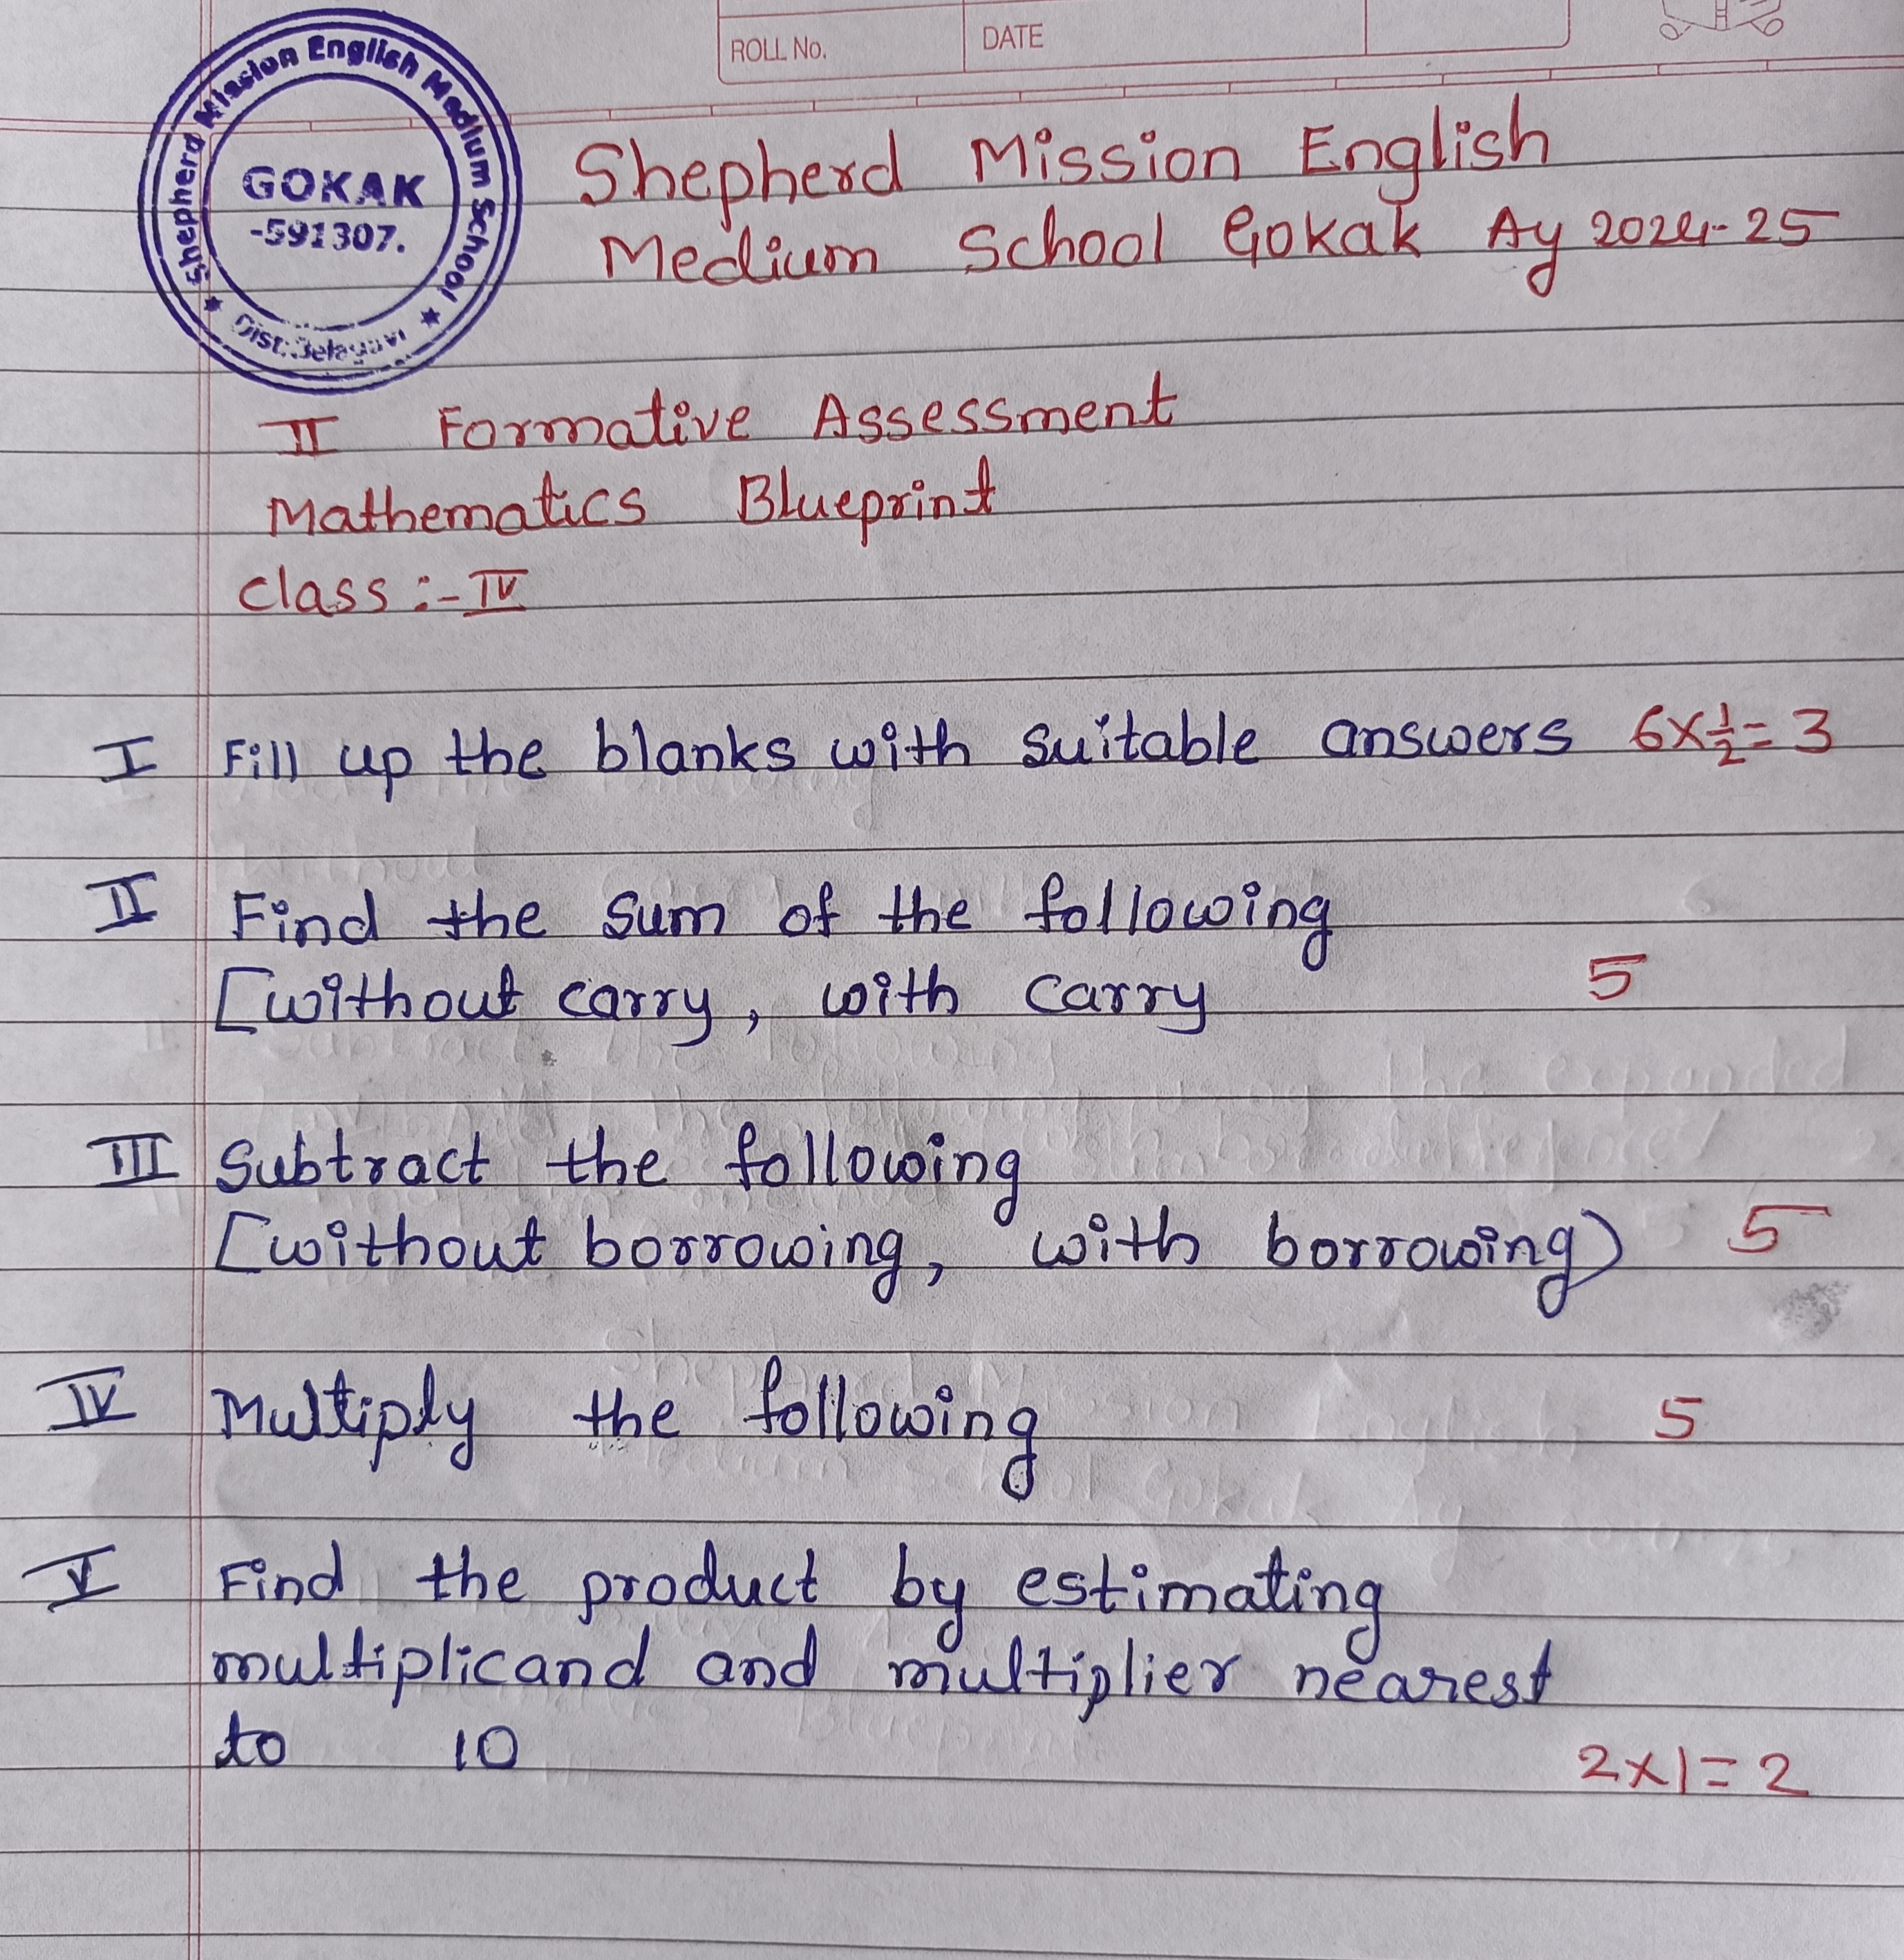 ROLL No.
DATE
Shepherd Mission English Medium School
GOKAK
-591307.
Dist: Belagavi
Shepherd Mission English
Medium School Gokak Ay 2024-25
II Formative Assessment
Mathematics Blueprint
class :- IV
I Fill up the blanks with suitable answers 6×½=3
II Find the sum of the following
[without carry, with carry 5
III Subtract the following
[without borrowing, with borrowing) 5
IV Multiply the following 5
V Find the product by estimating
multiplicand and multiplier nearest
to 10 2×1=2